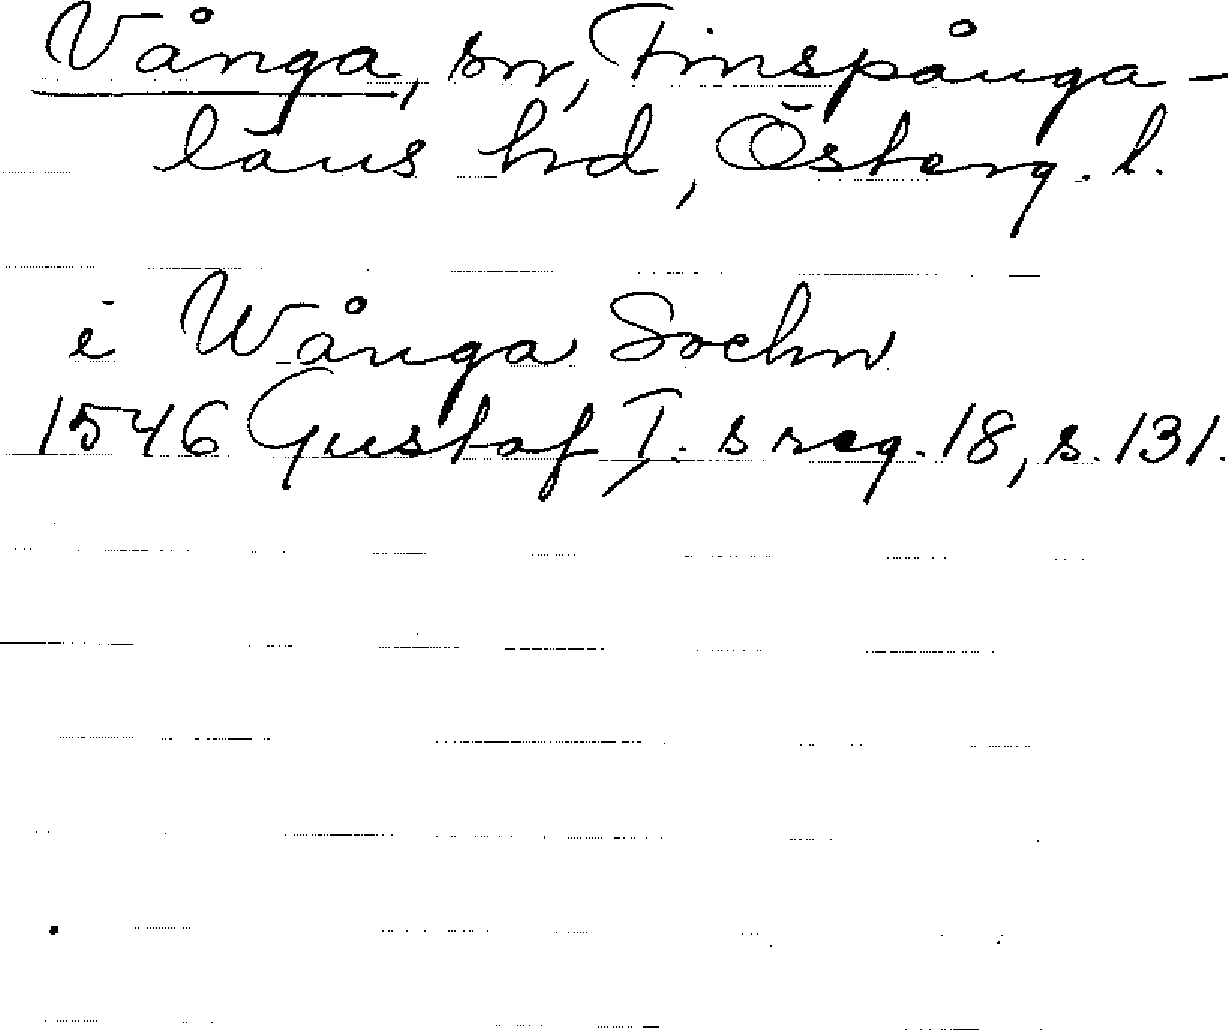 Vånga, sn, Finspånga-
läns hd, Österg. l.
i Wånga Sochn
1546 Gustaf I:s reg. 18, s. 131.